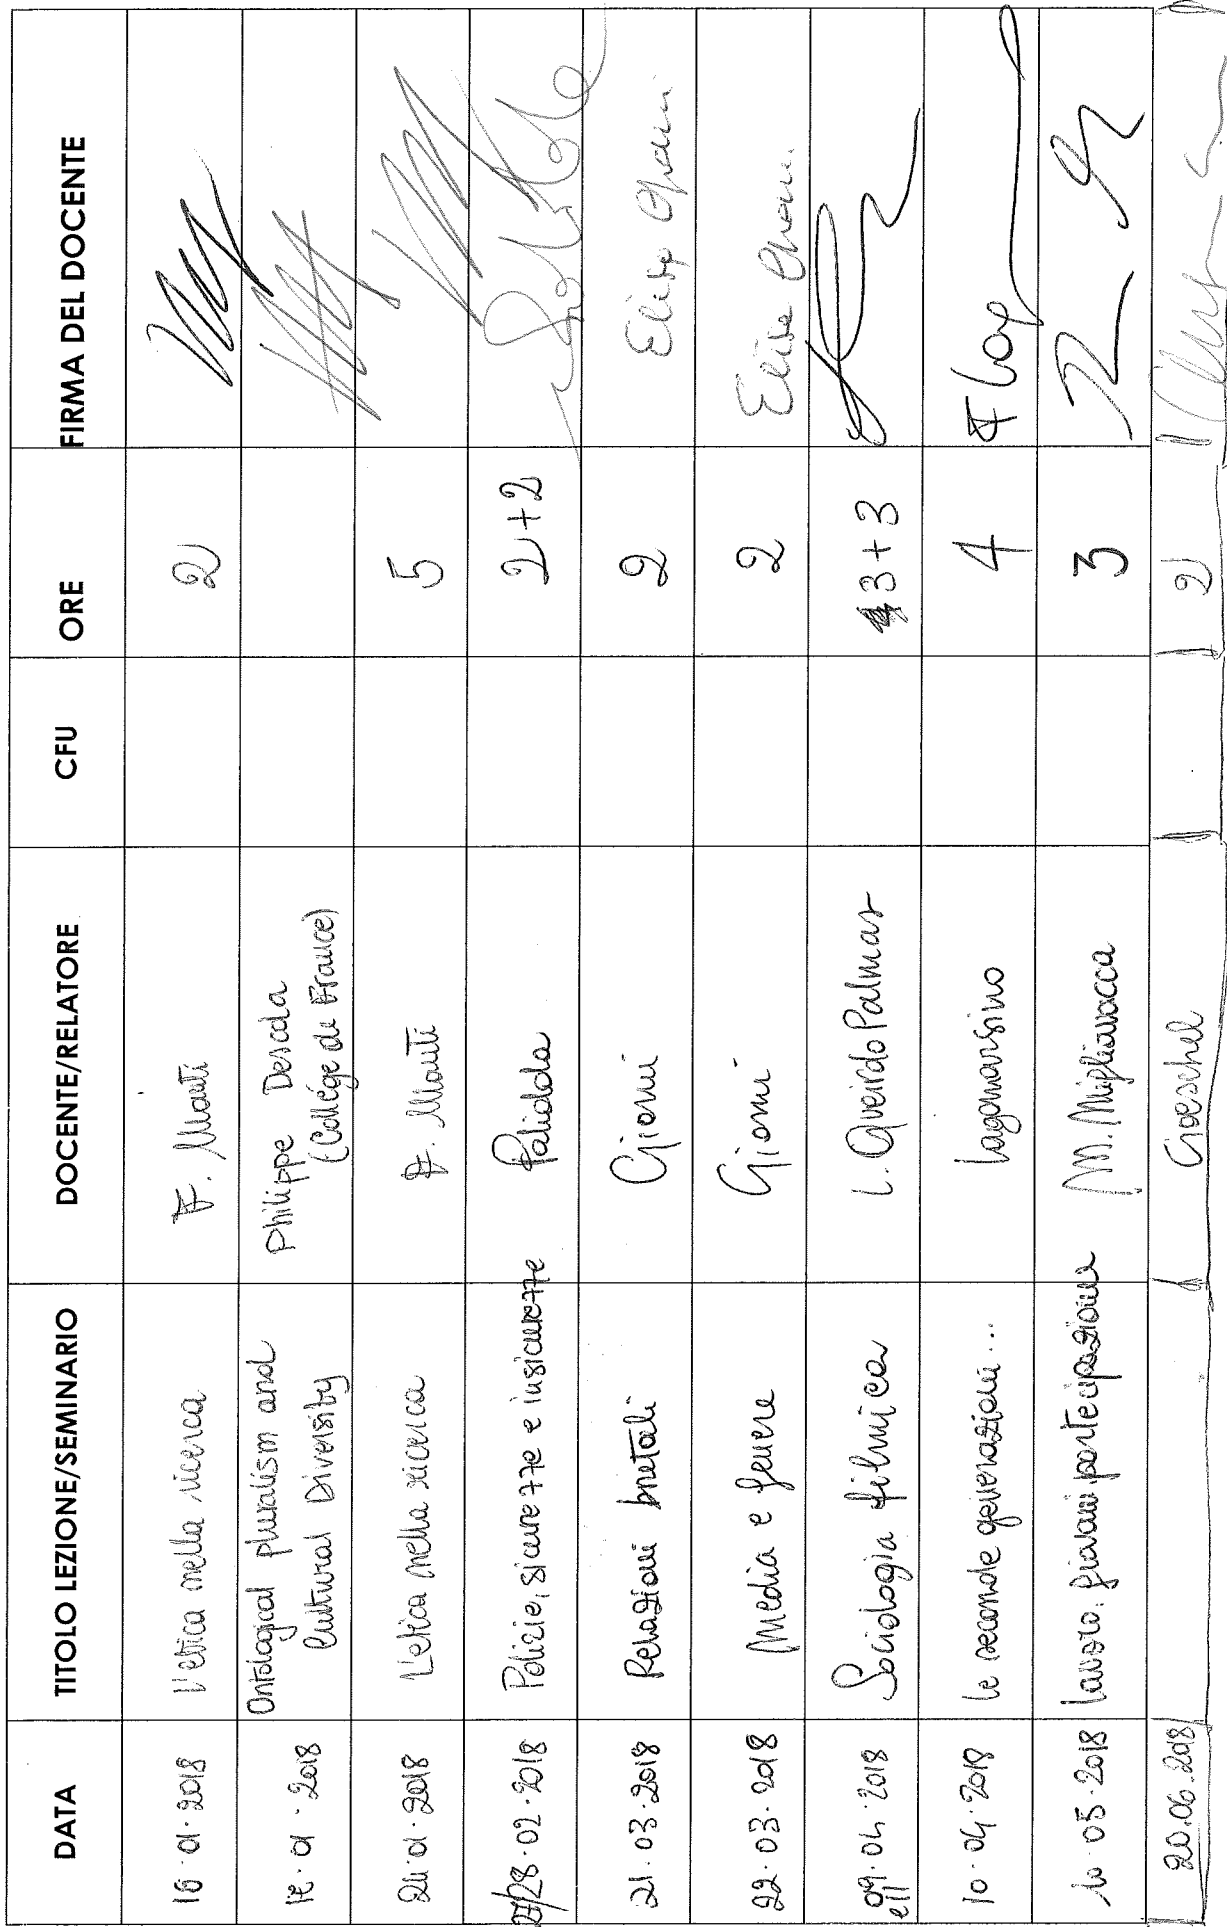 DATA TITOLO LEZIONE/SEMINARIO DOCENTE/RELATORE CFU ORE FIRMA DEL DOCENTE
16.01.2018 L'etica nella ricerca F. Monti 2
18.01.2018 Ontological pluralism and Philippe Descola
Cultural Diversity (Collége de France)
24.01.2018 L'etica nella ricerca F. Monti 5
27/28.02.2018 Polizie, sicurezze e insicurezze Palidda 2+2
21.03.2018 Relazioni brutali Giomi 2 Elisa Giomi
22.03.2018 Media e genere Giomi 2 Elisa Giomi
09.04.2018 Sociologia filmica L. Queirolo Palmas 3+3
e 11
10.04.2018 Le seconde generazioni... Lagomarsino 4
10.05.2018 Lavoro, giovani, partecipazione M. Migliavacca 3
20.06.2018 Goeschel 2